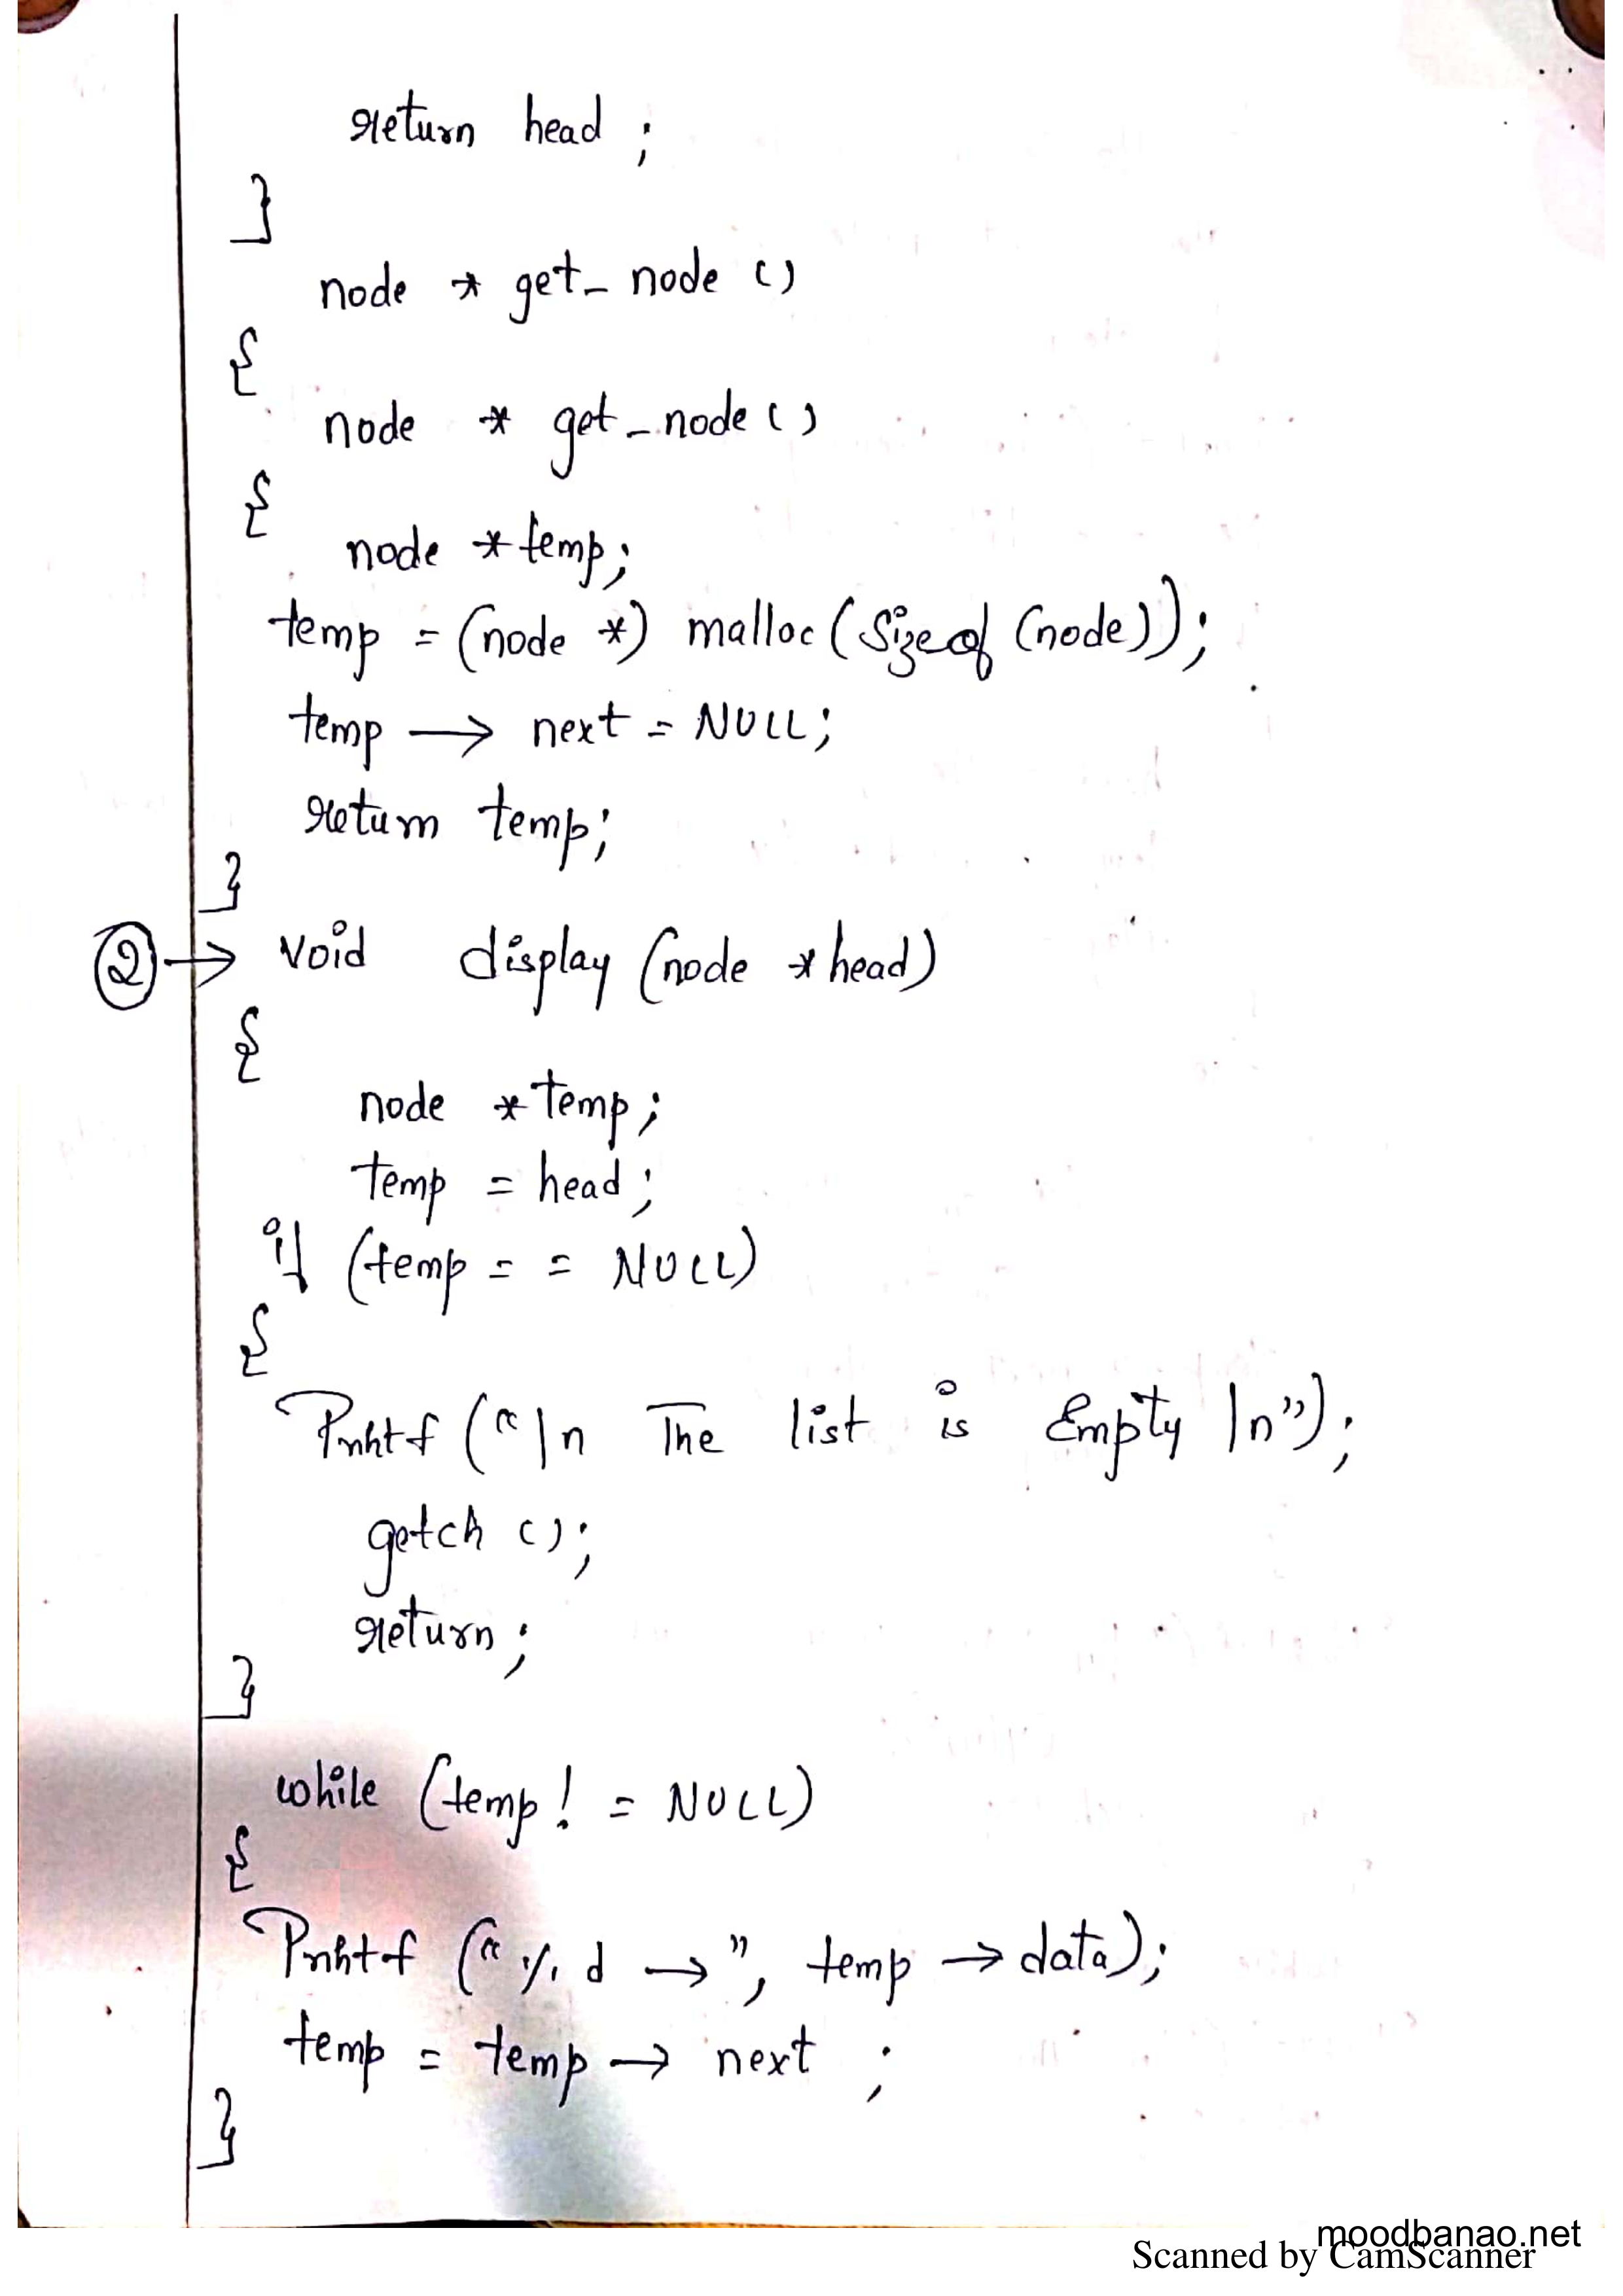 return head ;
}
node * get_ node ()
{
node * get_node ()
{
node *temp;
temp = (node *) malloc (Sizeof (node));
temp → next = NULL;
return temp;
}
② → void display (node *head)
{
node *temp;
temp = head ;
if (temp = = NULL)
{
Printf ("\n The list is Empty \n");
getch ();
return ;
}
while (temp ! = NULL)
{
Printf (" % d →", temp → data);
temp = temp → next ;
}
moodbanao.net
Scanned by CamScanner